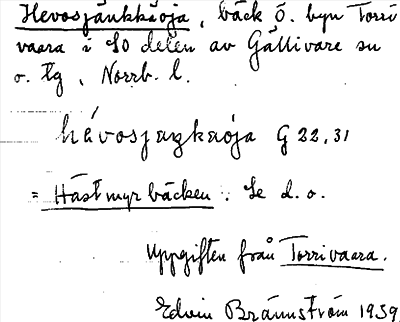 Hevosjänkkäoja, bäck ö. byn Torri
vaara i SO delen av Gällivare sn
o. tg, Norrb. l.
hévosjaŋkaója G 22,31
= Hästmyrbäcken. Se d. o.
Uppgiften från Torrivaara.
Edvin Brännström 1939